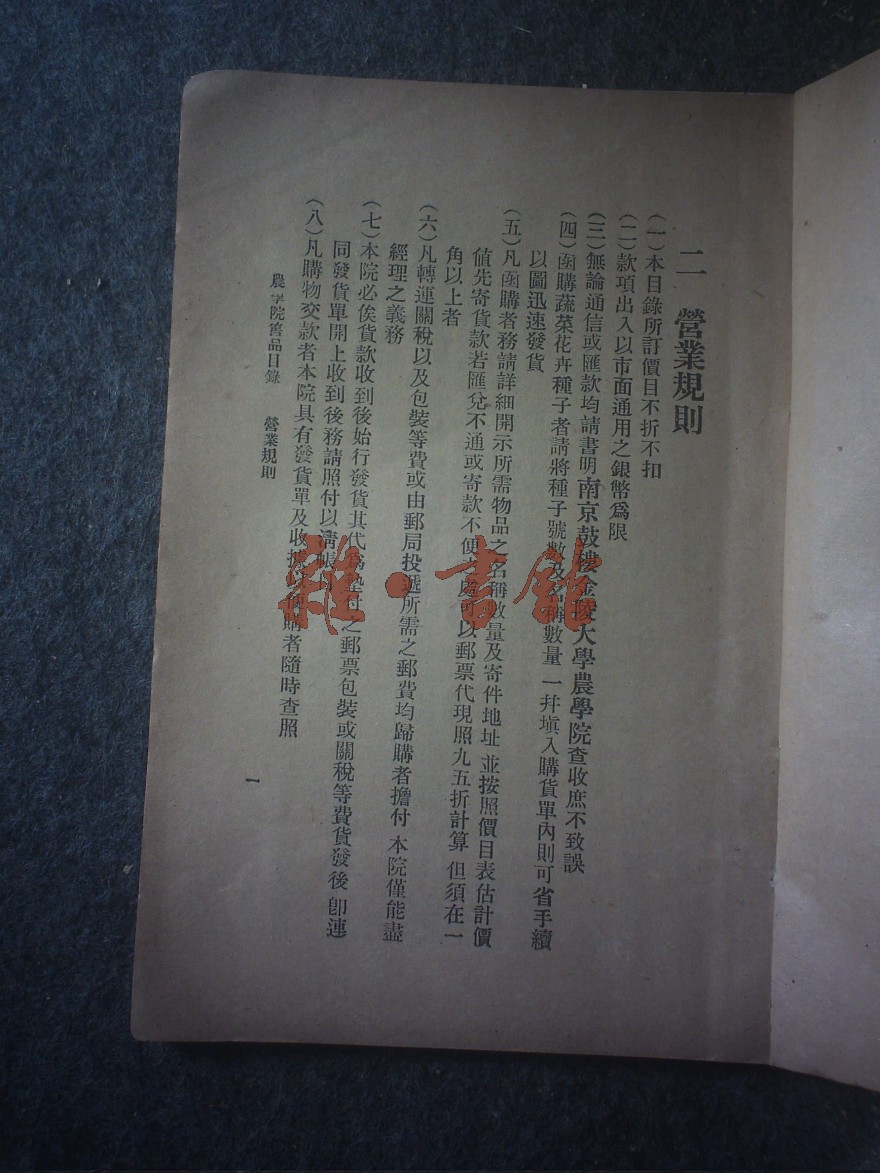 二 營業規則
(一)本目錄所訂價目不折不扣
(二)款項出入以市面通用之銀幣爲限
(三)無論通信或匯款均請書明南京鼓樓金陵大學農學院查收庶不致誤
(四)函購蔬菜花卉種子者請將種子號數及名稱數量一幷塡入購貨單內則可省手續
以圖迅速發貨
(五)凡函購者務請詳細開示所需物品之名稱數量及寄件地址並按照價目表估計價
值先寄貨款若匯兌不通或寄款不便之處可以郵票代現照九五折計算但須在一
角以上者
(六)凡轉運關稅以及包裝等費或由郵局投遞所需之郵費均歸購者擔付本院僅能盡
經理之義務
(七)本院必俟貨款收到後始行發貨其代爲墊付之郵票包裝或關稅等費貨發後卽連
同發貨單開上收到後務請照付以淸帳
(八)凡購物交款者本院具有發貨單及收據以便購者隨時查照
農學院售品目錄 營業規則
一
雜·書館